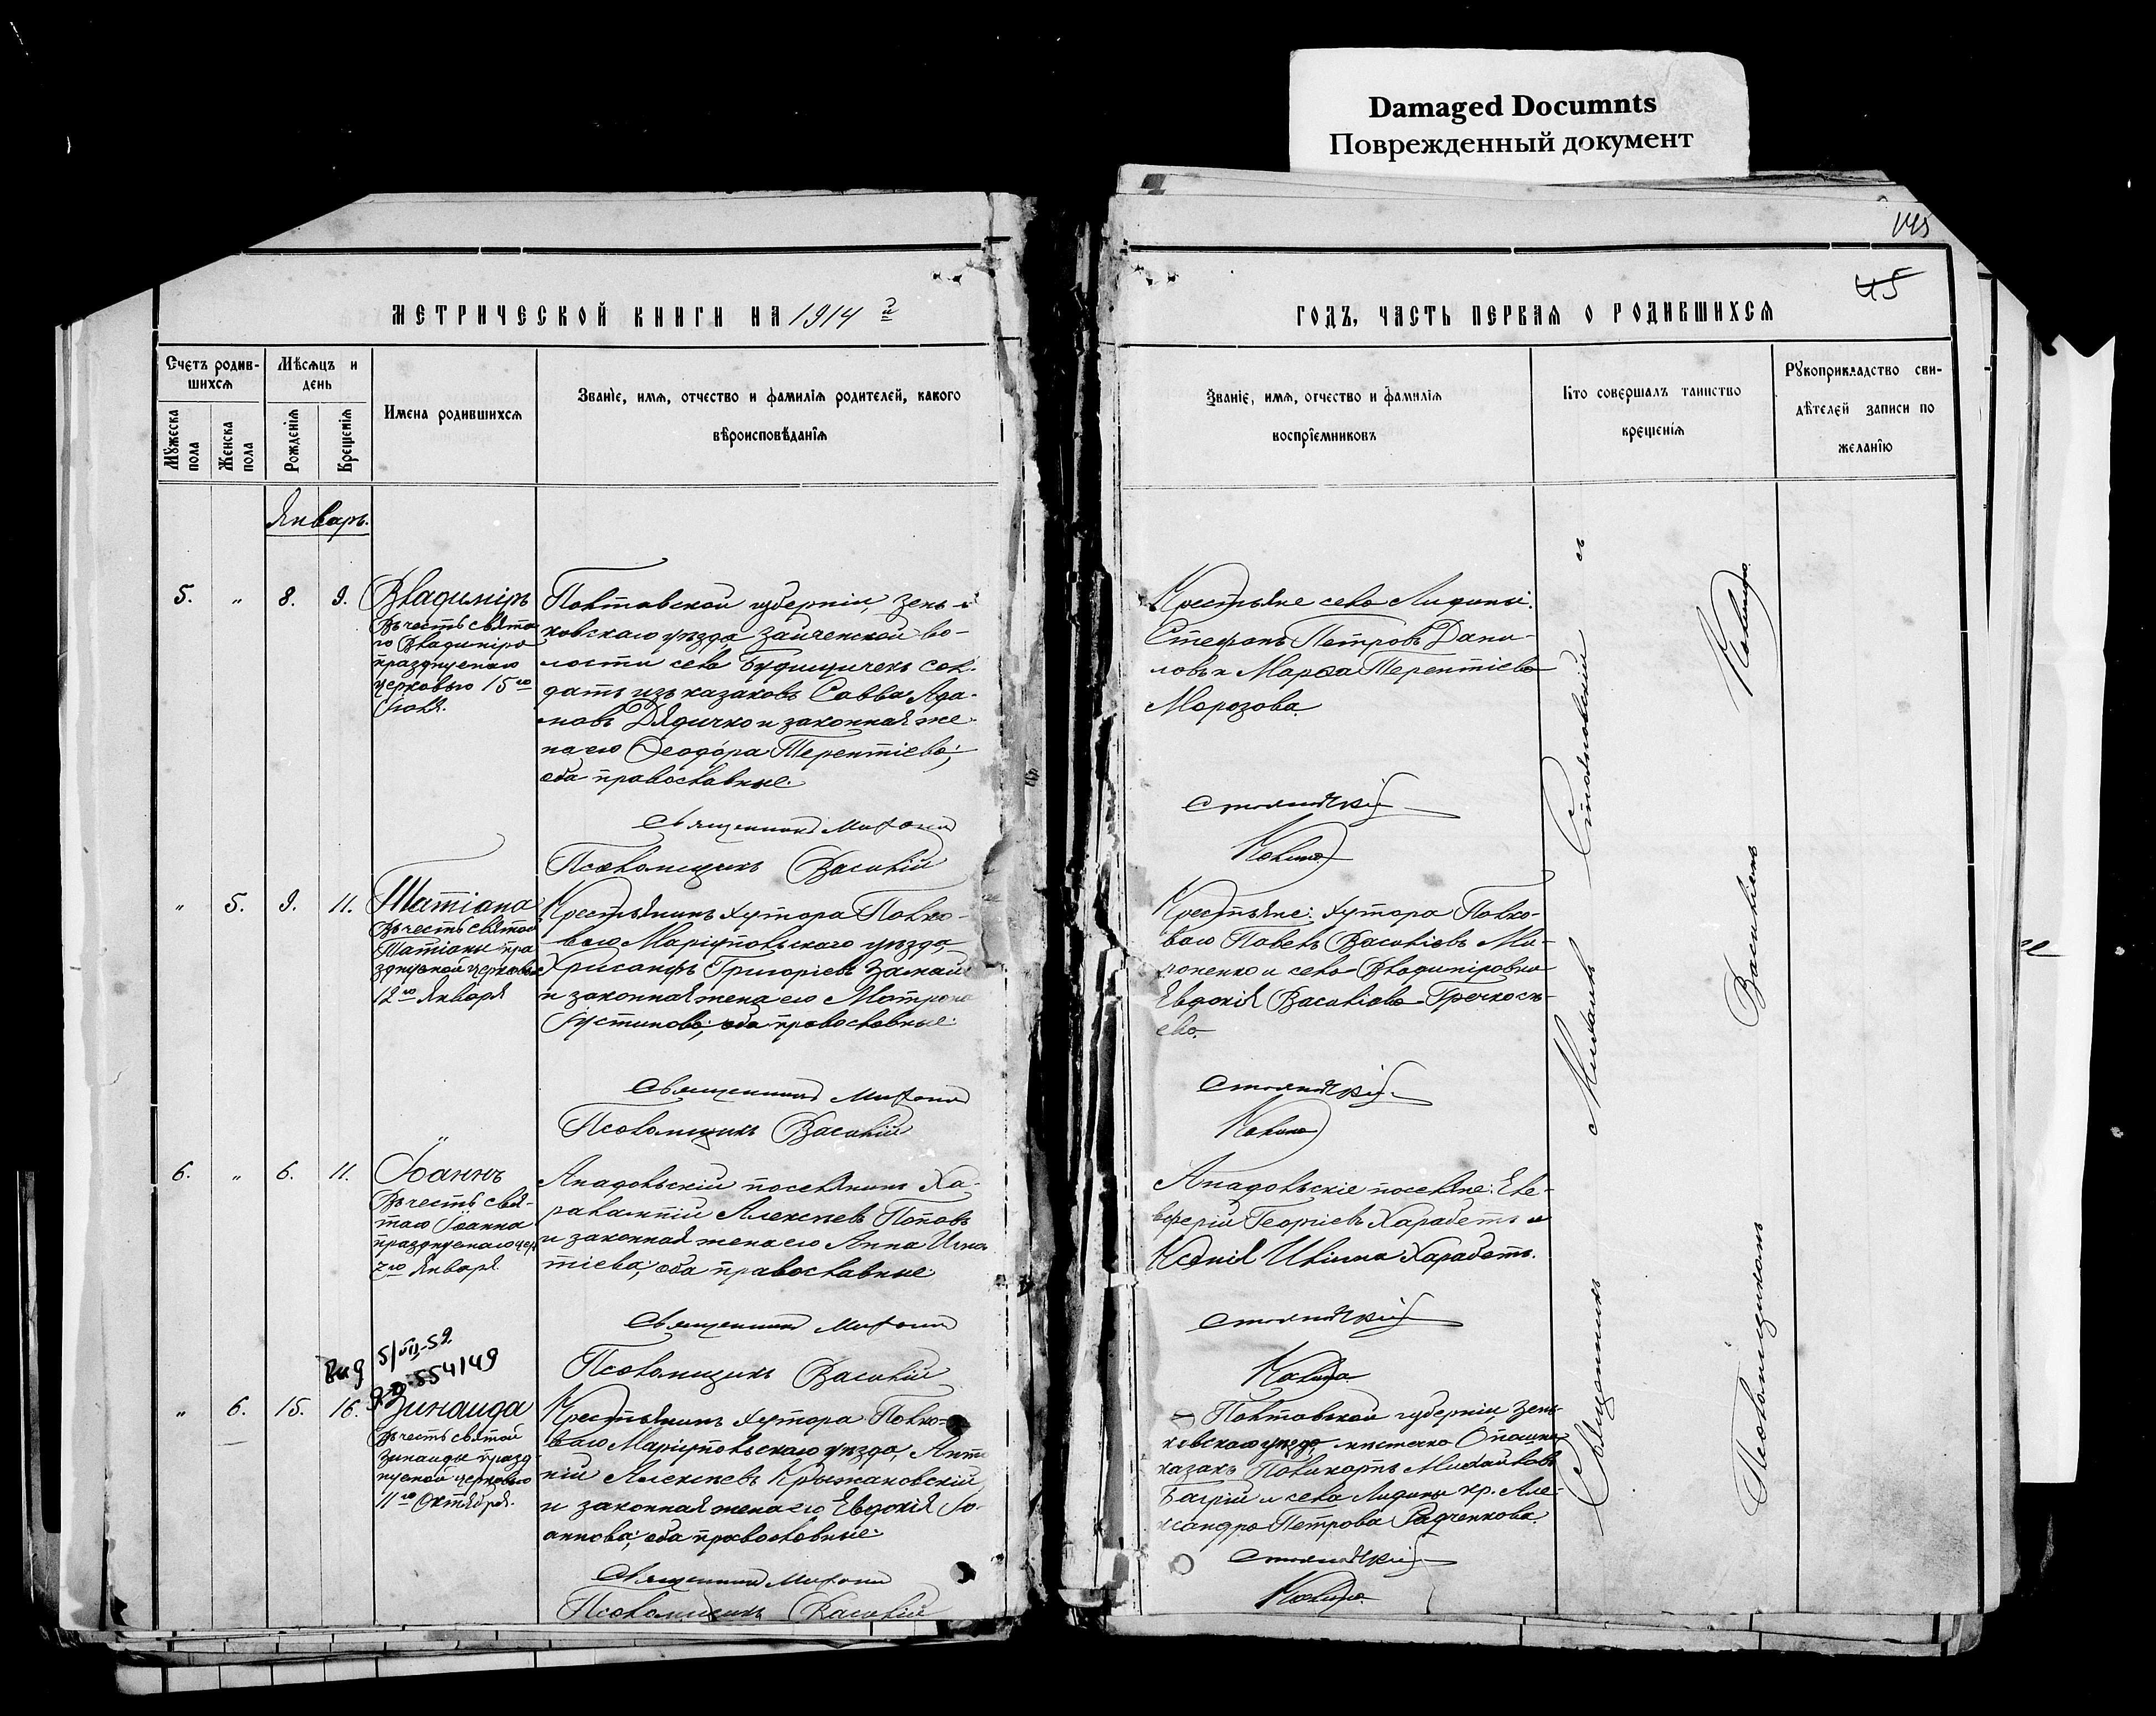 Damaged Documnts
Поврежденный документ
145
45
МЕТРИЧЕСКОЙ КНИГИ НА 1914 г
ГОДЪ, ЧАСТЬ ПЕРВАЯ О РОДИВШИХСЯ
Счетъ родив-
шихся
Мѣсяцъ и
день
Мужеска
пола
Женска
пола
Рожденія
Крещенія
Имена родившихся
Званіе, имя, отчество и фамилія родителей, какого
вѣроисповѣданія
Званіе, имя, отчество и фамилія
воспріемниковъ
Кто совершалъ таинство
крещенія
Рукоприкладство сви-
дѣтелей записи по
желанію
Январь.
5. " 8. 9.
Владиміръ
Въ честь свято
го Владиміра
празднуемаго
церковью 15го
Іюля.
Полтавской губерніи, Зень-
ковскаго уѣзда, Заиченской во-
лости села Будищичекъ сол-
датъ изъ казаковъ Савва Ада-
мовъ Дядичко и законная же-
на его Ѳеодора Терентіева;
оба православные.
Священникъ Михаилъ
Псаломщикъ Василій
Крестьяне села Лидины:
Стефанъ Петровъ Дани-
ловъ и Марѳа Терентіева
Морозова.
Стояновскій
Калина
" 5. 9. 11.
Татіана
Въ честь святой
Татіаны пра
зднуемой церковью
12го Января
Крестьянинъ хутора Полко-
ваго Маріупольскаго уѣзда,
Хрисанфъ Григоріевъ
и законная жена его Матрона
Іустинова; оба православные.
Священникъ Михаилъ
Псаломщикъ Василій
Крестьяне: хутора Полко-
ваго Павелъ Василіевъ Ми-
роненко и села Владиміровки
Евдокія Василіева Гречкосѣ-
ева.
Стояновскій
Калина
6. " 6. 11.
Іоаннъ
Въ честь свя-
таго Іоанна
празднуемаго цер
7го Января.
Анадольскій поселянинъ Ха-
ралампій Алексѣевъ Поповъ
и законная жена его Анна Игна
тіева; оба православные.
Священникъ Михаилъ
Псаломщикъ Василій
Анадольскіе поселяне: Еле-
вферій Георгіевъ Харабетъ и
Ксенія Ильина Харабетъ.
Стояновскій
Калина
5/VII-59
554149
" 6. 15. 16.
Зинаида
Въ честь святой
Зинаиды празд
нуемой церковью
11го Октября.
Крестьянинъ хутора Полко-
ваго Маріупольскаго уѣзда, Анто
ній Алексѣевъ Крыжановскій
и законная жена его Евдокія Іо-
аннова; оба православные.
Священникъ Михаилъ
Псаломщикъ Василій
Полтавской губерніи, Зень-
ковскаго уѣзда, мистечка Опошни
казакъ Поликарпъ Михайловъ
Багрій и села Лидины кр. Але-
ксандра Петрова Радченкова.
Стояновскій
Калина
Священникъ Михаилъ Стояновскій съ
Псаломщикомъ Василіемъ Калиною.